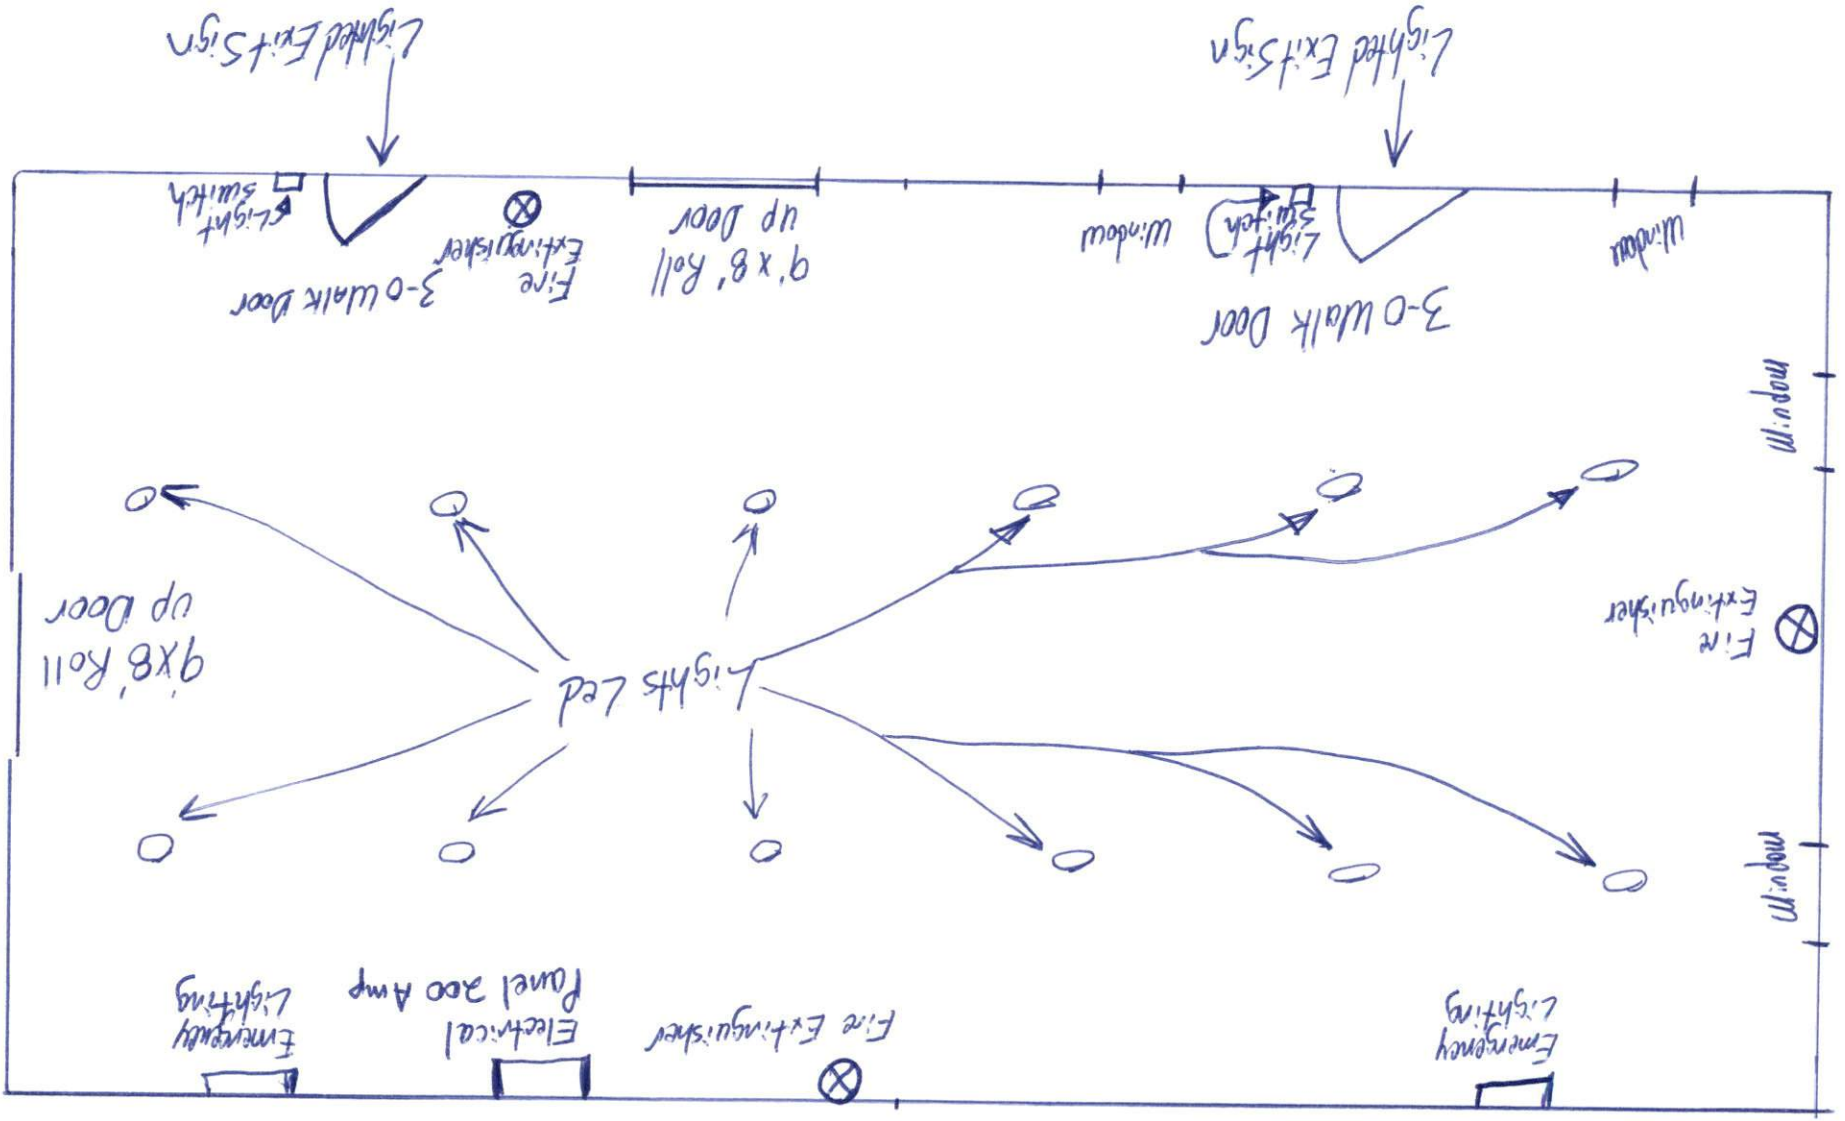 Emergency
Lighting
Fire Extinguisher
Electrical
Panel 200 Amp
Emergency
Lighting
Window
Fire
Extinguisher
Lights Led
9'x8' Roll
up Door
Window
3-0 Walk Door
Window
Light
Switch
Window
9'x8' Roll
up Door
Fire
Extinguisher
3-0 Walk Door
Light
Switch
Lighted Exit Sign
Lighted Exit Sign